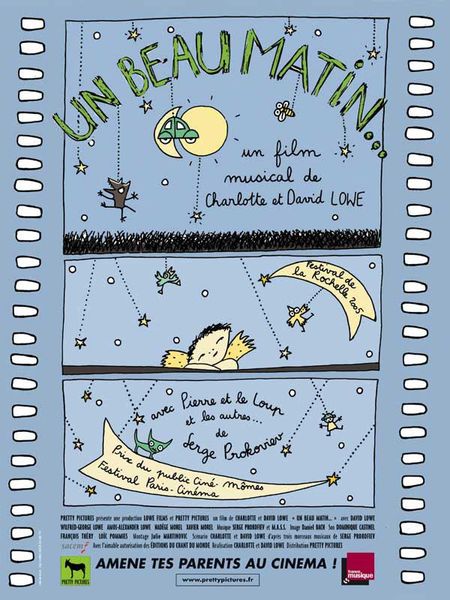 UN BEAU MATIN...
un film
musical de
Charlotte et David LOWE
Festival de
la Rochelle 2005
avec Pierre et le Loup
et les autres...
de
Serge Prokoviev
Prix du public Ciné-Mômes
Festival Paris-Cinéma
PRETTY PICTURES présente une production LOWE FILMS et PRETTY PICTURES un film de CHARLOTTE et DAVID LOWE « UN BEAU MATIN... » avec DAVID LOWE
WILFRID-GEORGE LOWE ANYS-ALEXANDER LOWE MAËLLE MOREL XAVIER MOREL Musique SERGE PROKOFIEV et M.A.S.S. Image DANIEL Son DOMINIQUE
FRANÇOIS THÉRY LOÏC POMMIES Montage Julie MARTINOVIC Scénario CHARLOTTE et DAVID LOWE d'après trois morceaux musicaux de SERGE PROKOFIEV
sacem Avec l'aimable autorisation des ÉDITIONS DU CHANT DU MONDE Réalisation CHARLOTTE et DAVID LOWE Distribution PRETTY PICTURES
PRETTY PICTURES
AMENE TES PARENTS AU CINEMA !
france musique
www.prettypictures.fr